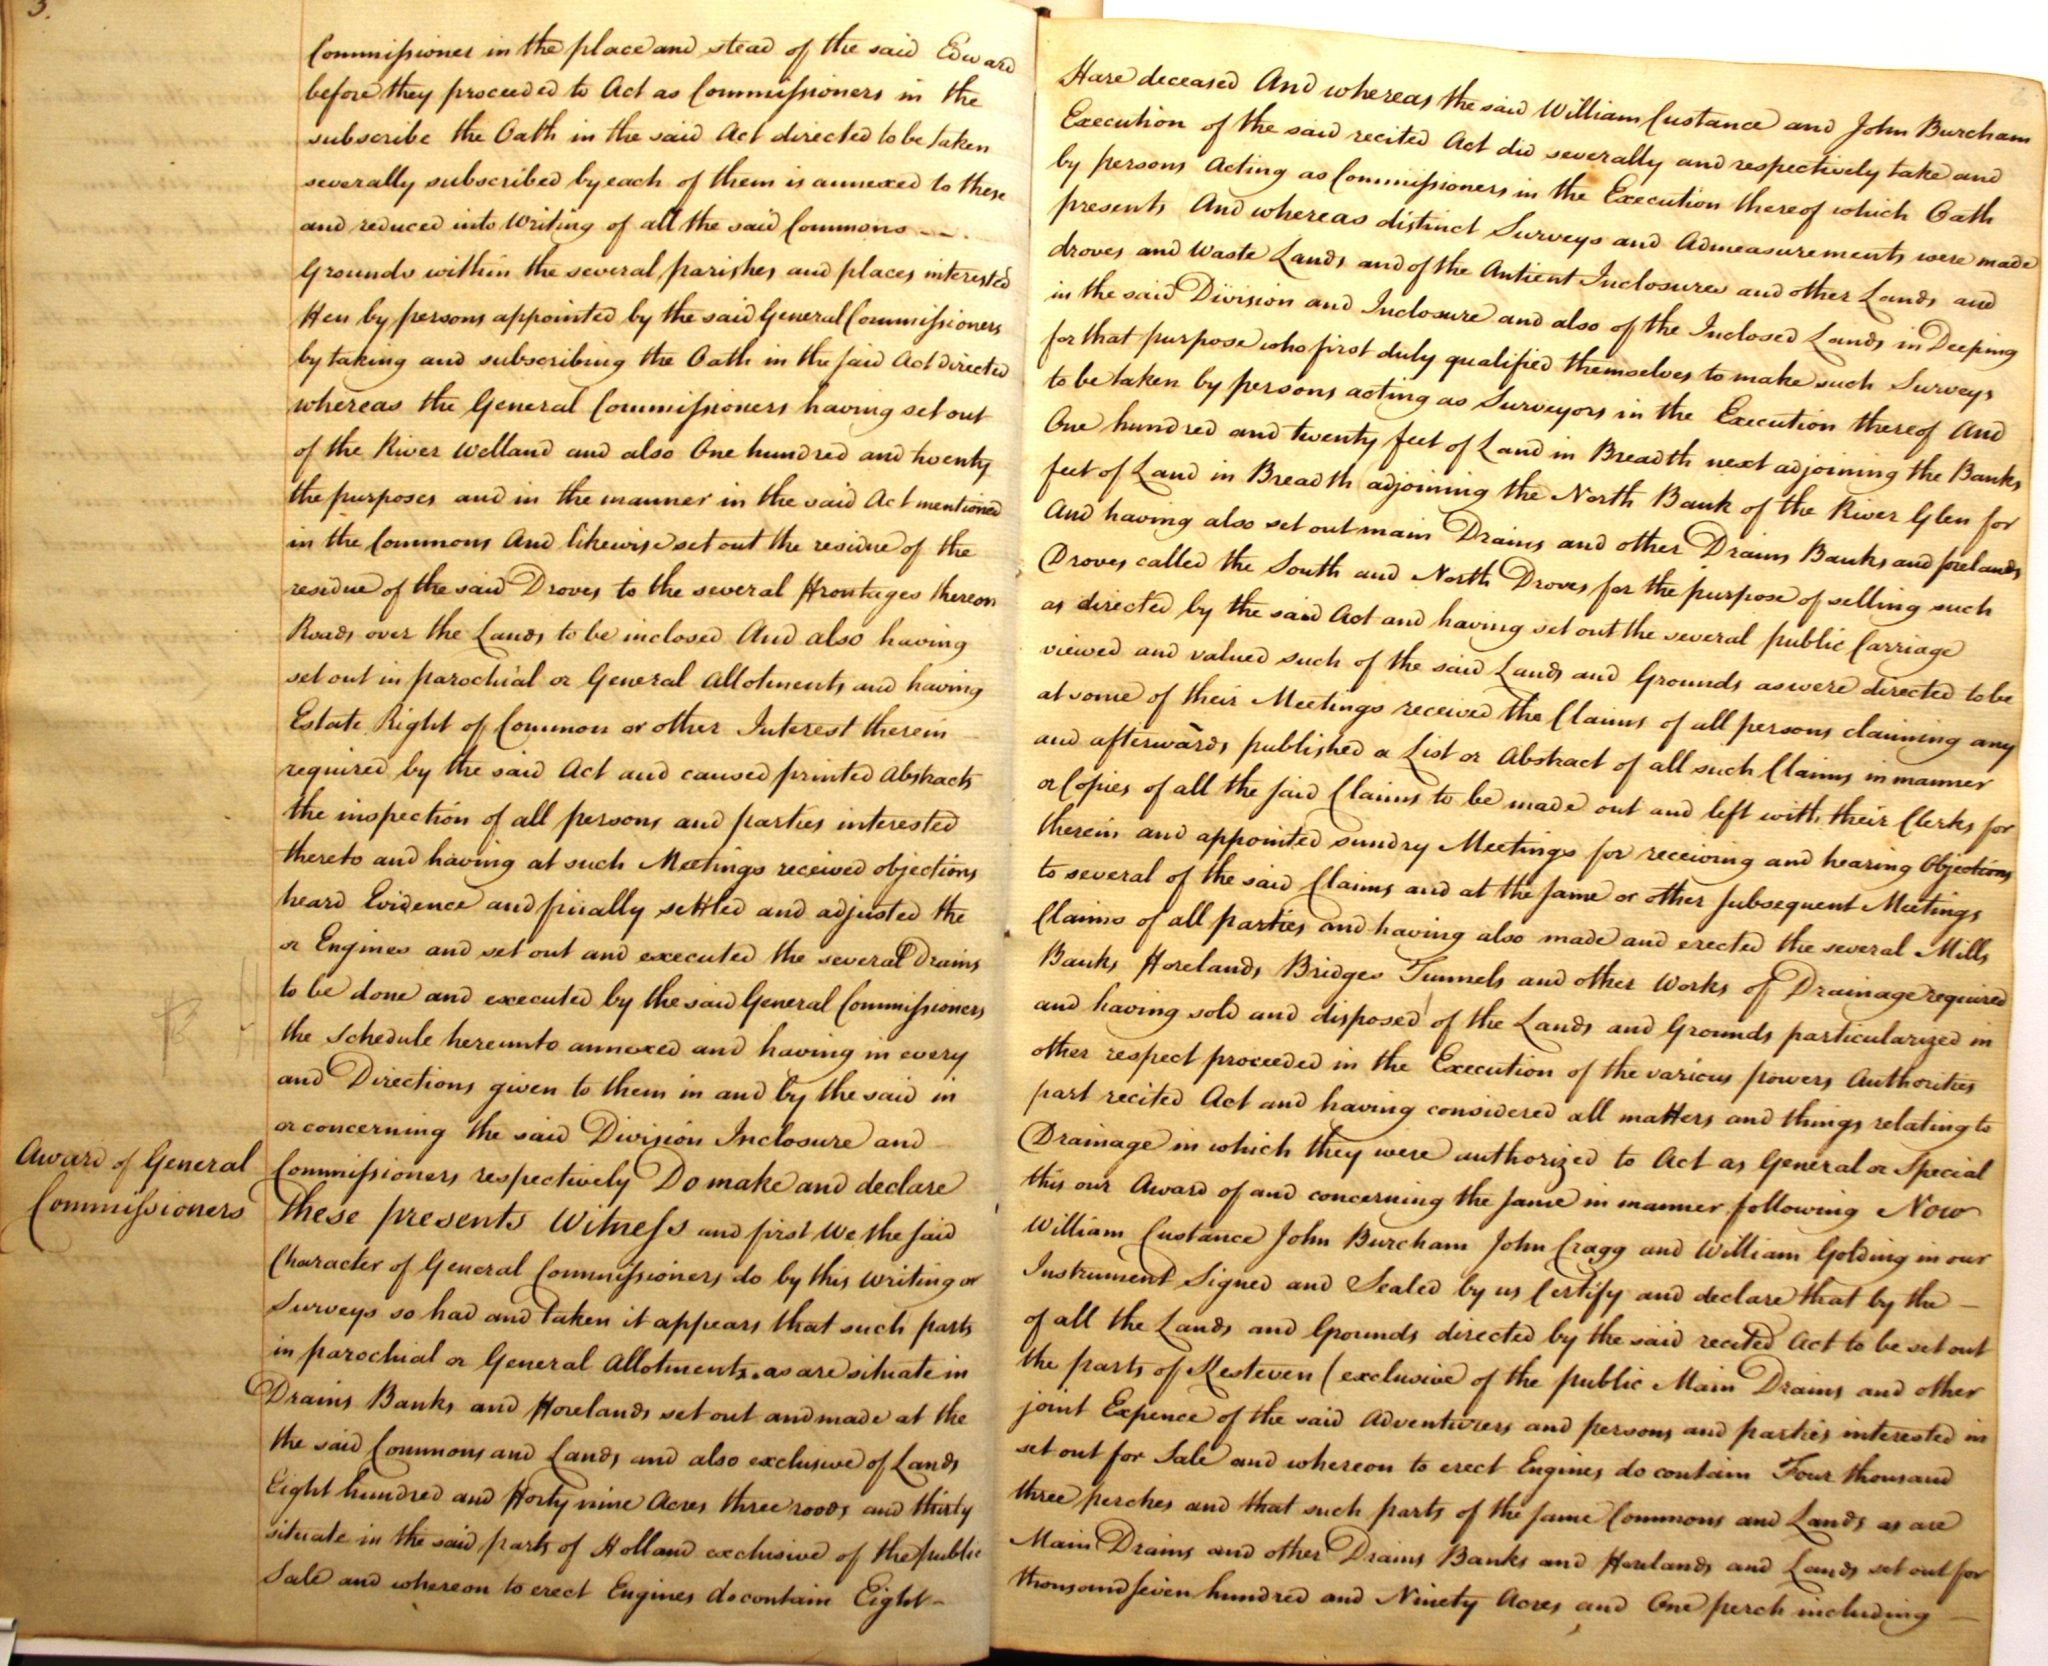 3.
Commissioner in the place and stead of the said Edward Hare deceased And whereas the said William Custance and John Burcham
before they proceeded to Act as Commissioners in the Execution of the said recited Act did severally and respectively take and
subscribe the Oath in the said Act directed to be taken by persons Acting as Commissioners in the Execution thereof which Oath
severally subscribed by each of them is annexed to these presents And whereas distinct Surveys and Admeasurements were made
and reduced into Writing of all the said Commons droves and Waste Lands and of the Antient Inclosures and other Lands and
Grounds within the several parishes and places interested in the said Division and Inclosure and also of the Inclosed Lands in Deeping
Fen by persons appointed by the said General Commissioners for that purpose who first duly qualified themselves to make such Surveys
by taking and subscribing the Oath in the said Act directed to be taken by persons acting as Surveyors in the Execution thereof And
whereas the General Commissioners having set out One hundred and twenty feet of Land in Breadth next adjoining the Banks
of the River Welland and also One hundred and twenty feet of Land in Breadth adjoining the North Bank of the River Glen for
the purposes and in the manner in the said Act mentioned And having also set out main Drains and other Drains Banks and forelands
in the Commons And likewise set out the residue of the Droves called the South and North Droves for the purpose of selling such
residue of the said Droves to the several Frontages thereon as directed by the said Act and having set out the several public Carriage
Roads over the Lands to be inclosed And also having viewed and valued such of the said Lands and Grounds as were directed to be
set out in parochial or General Allotments and having at some of their Meetings received the Claims of all persons claiming any
Estate Right of Common or other Interest therein and afterwards published a List or Abstract of all such Claims in manner
required by the said Act and caused printed Abstracts or Copies of all the said Claims to be made out and left with their Clerks for
the inspection of all persons and parties interested therein and appointed sundry Meetings for receiving and hearing Objections
thereto and having at such Meetings received objections to several of the said Claims and at the same or other subsequent Meetings
heard Evidence and finally settled and adjusted the Claims of all parties and having also made and erected the several Mills
or Engines and set out and executed the several Drains Banks Forelands Bridges Tunnels and other Works of Drainage required
to be done and executed by the said General Commissioners and having sold and disposed of the Lands and Grounds particularized in
the Schedule hereunto annexed and having in every other respect proceeded in the Execution of the various powers Authorities
and Directions given to them in and by the said in part recited Act and having considered all matters and things relating to
or concerning the said Division Inclosure and Drainage in which they were authorized to Act as General or Special
Award of General
Commissioners
Commissioners respectively Do make and declare this our Award of and concerning the same in manner following Now
these presents Witness and first We the said William Custance John Burcham John Cragg and William Golding in our
Character of General Commissioners do by this Writing or Instrument Signed and Sealed by us Certify and declare that by the
Surveys so had and taken it appears that such parts of all the Lands and Grounds directed by the said recited Act to be set out
in parochial or General Allotments as are situate in the parts of Kesteven (exclusive of the public Main Drains and other
Drains Banks and Forelands set out and made at the joint Expence of the said Adventurers and persons and parties interested in
the said Commons and Lands and also exclusive of Lands set out for Sale and whereon to erect Engines do contain Four thousand
Eight hundred and Forty nine Acres three roods and thirty three perches and that such parts of the same Commons and Lands as are
situate in the said parts of Holland exclusive of the public Main Drains and other Drains Banks and Forelands and Lands set out for
Sale and whereon to erect Engines do contain Eight thousand seven hundred and Ninety Acres and One perch including